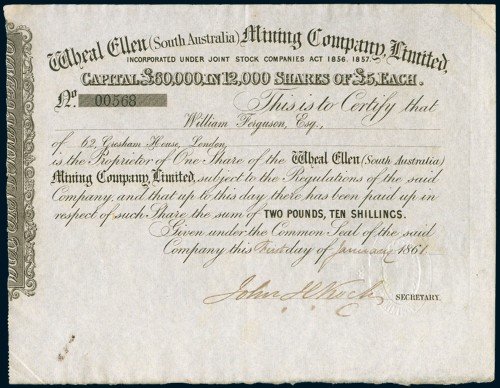 Wheal Ellen (South Australia) Mining Company, Limited,
INCORPORATED UNDER JOINT STOCK COMPANIES ACT 1856. 1857.
CAPITAL £60,000 IN 12,000 SHARES OF £5, EACH.
No. 00568 This is to Certify that
William Ferguson, Esq.,
of 62, Gresham House, London,
is the Proprietor of One Share of the Wheal Ellen (South Australia)
Mining Company, Limited, subject to the Regulations of the said
Company, and that up to this day there has been paid up in
respect of such Share the sum of TWO POUNDS, TEN SHILLINGS.
Given under the Common Seal of the said
Company this First day of January 1861
John SECRETARY.